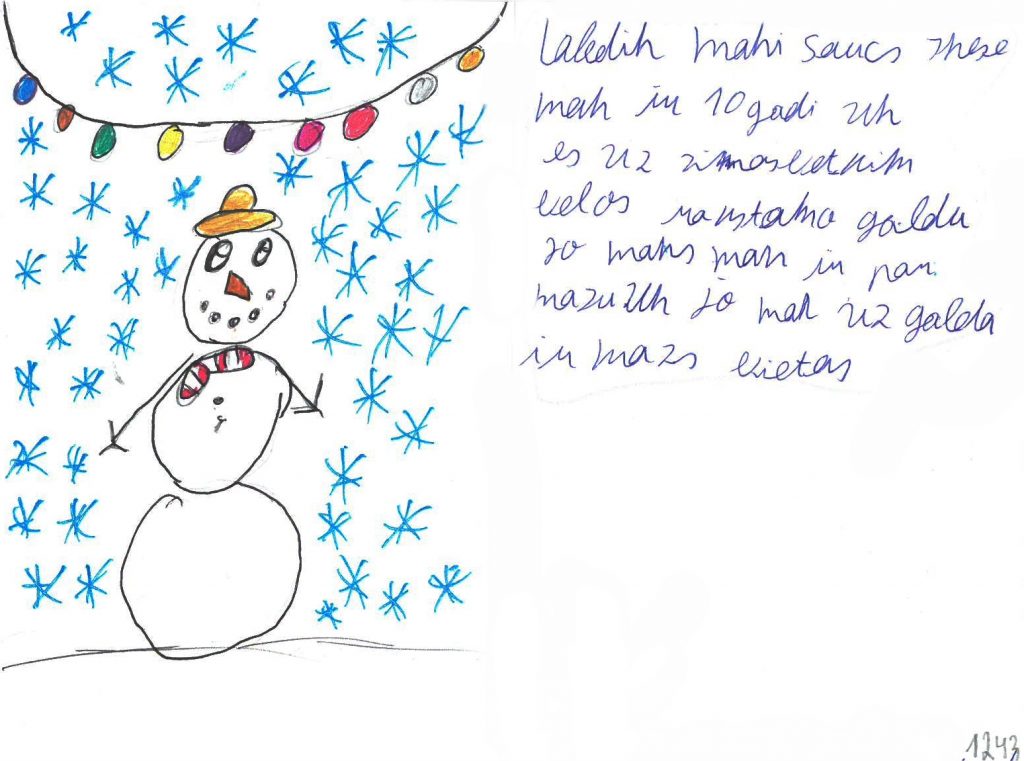 Labdin mani saucs Therese
man in 10 gadi un
es uz zimasvetkim
velos rakstamo galdu
jo mans man in par
mazu un jo man uz galda
in mazs vietas
1243